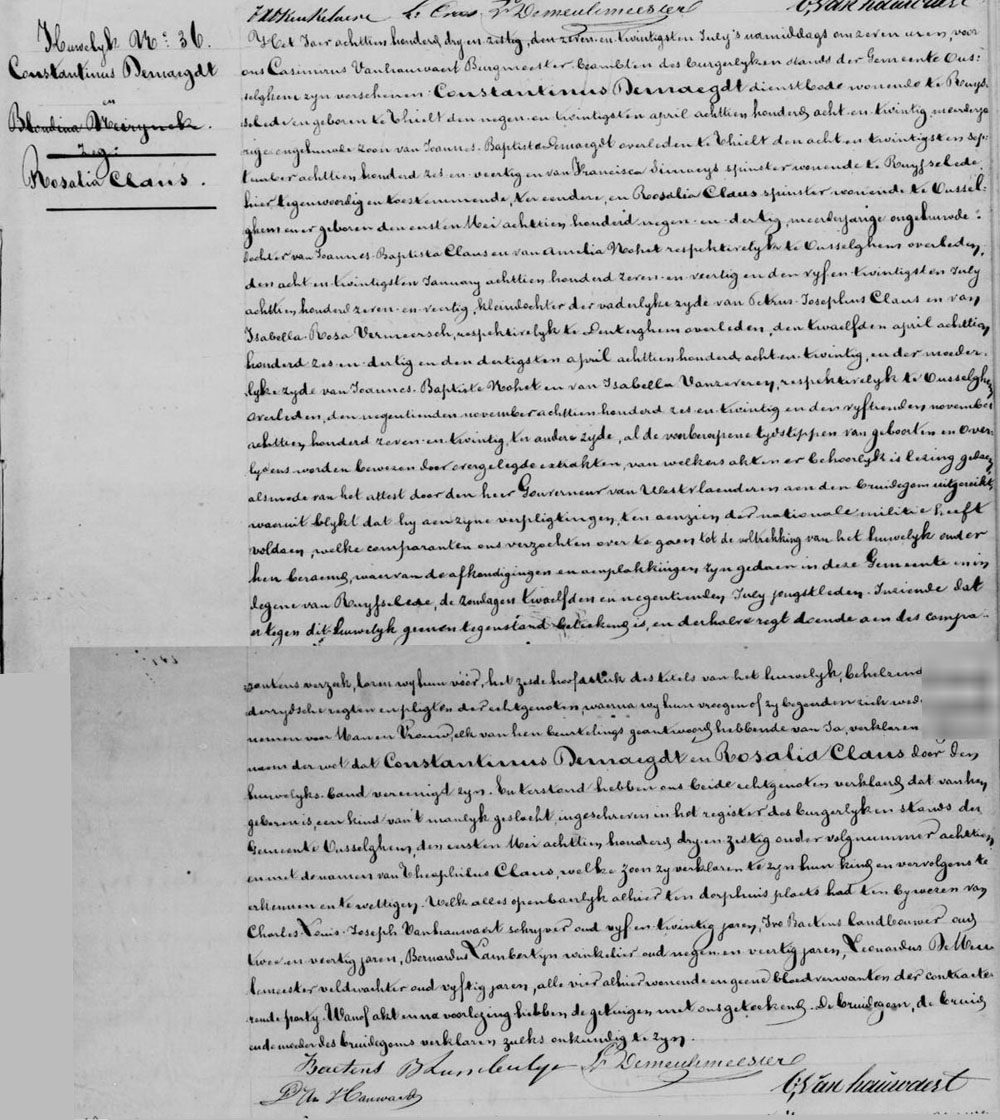 Huwelyk No. 36.
Constantinus Demaegdt
en
Blondina Meirynck.
zeg:
Rosalia Claus.
L. Demeulemeester C. Van hauwaert
Het Jaer achttien honderd dry en zestig, den zeven en twintigsten July's namiddags om zeven uren, voor
ons Casimirus Vanhauwaert Burgmeester beambten des burgerlyken stands der Gemeente Ous-
selghem zyn verschenen Constantinus Demaegdt dienstbode wonende te Ruys-
selede en geboren te Thielt den negen en twintigsten april achttien honderd acht en twintig, meerderja
rige ongehuwde zoon van Joannes-Baptiste Demaegdt overleden te Thielt den acht en twintigsten sep-
tember achttien honderd zes en veertig en van Francisca spinster wonende te Ruysselede
hier tegenwoordig en toestemmende, ter eendere, en Rosalia Claus spinster wonende te Oussel-
ghem en er geboren den eersten Mei achttien honderd negen en dertig, meerderjarige ongehuwde
dochter van Joannes-Baptista Claus en van Amelia Nohet respektivelyk te Ousselghem overleden,
den acht en twintigsten January achttien honderd zeven en veertig en den vyf en twintigsten July
achttien honderd zeven en veertig, kleindochter der vaderlyke zyde van Petrus-Josephus Claus en van
Isabella-Rosa Vermeersch, respektivelyk te Denterghem overleden, den twaelfden april achttien
honderd zes en dertig en den dertigsten april achttien honderd acht en twintig, en der moeder-
lyke zyde van Joannes-Baptiste Nohet en van Isabella Vanzeveren, respektivelyk te Ousselghem
overleden, den negentienden november achttien honderd zes en twintig en den vyftienden november
achttien honderd zeven en twintig, ter andere zyde, al de voorberoepene tydstippen van geboorten en over-
lydens worden bewezen door overgelegde extrakten, van welkers akten er behoorlyk is lezing gedaen
alsmede van het attest door den heer Gouverneur van Westvlaenderen aen den bruidegom uitgereikt,
waaruit blykt dat hy aen zyne verpligtingen, ten aenzien der nationale militie heeft
voldaen, welke comparanten ons verzochten over te gaen tot de voltrekking van het huwelyk onder
hen beraemd, waervan de afkondigingen en aenplakkingen zyn gedaen in deze Gemeente en in
degene van Ruysselede, de zondagen twaelfden en negentienden July jongstleden. Inziende dat
er tegen dit huwelyk geenen tegenstand beteekend is, en derhalve regt doende aen des compa-
ranten verzoek, lazen wy hun voor, het zesde hoofdstuk des titels van het huwelyk, behelzend
der regten en pligten der echtgenoten, waerna wy hun vroegen of zy begeerden zich
nemen voor Man en Vrouw, elk van hen beurtelings geantwoord hebbende van Ja, verklaren
naem der wet dat Constantinus Demaegdt en Rosalia Claus door den
huwelyks-band vereenigd zyn. En terstond hebben ons beide echtgenoten verklaerd dat van hen
geboren is, een kind van 't manlyk geslacht, ingeschreven in het register des burgerlyken stands der
Gemeente Ousselghem, den eersten Mei achttien honderd dry en zestig onder volgnummer achttien
en met de namen van Theophilus Claus, welke zoon zy verklaren te zyn hun kind en vervolgens te
erkennen en te wettigen. Welk alles openbaerlyk alhier ten dorphuis plaets had ten bywezen van
Charles-Louis-Joseph Vanhauwaert schryver oud vyf en twintig jaren, Ivo Baetens landbouwer oud
twee en veertig jaren, Bernardus Lambertyn winkelier oud negen en veertig jaren, Leonardus De Meu
lemeester veldwachter oud vyftig jaren, alle vier alhier wonende en geene bloedverwanten der contracte-
rende party. Waerof akt en na voorlezing hebben de getuigen met ons geteekend. De bruidegom, de bruid
en de moeder des bruidegoms verklaren zulks onkundig te zyn.
Baetens B Lambertyn L. Demeulemeester
Van Hauwaert C. Van hauwaert